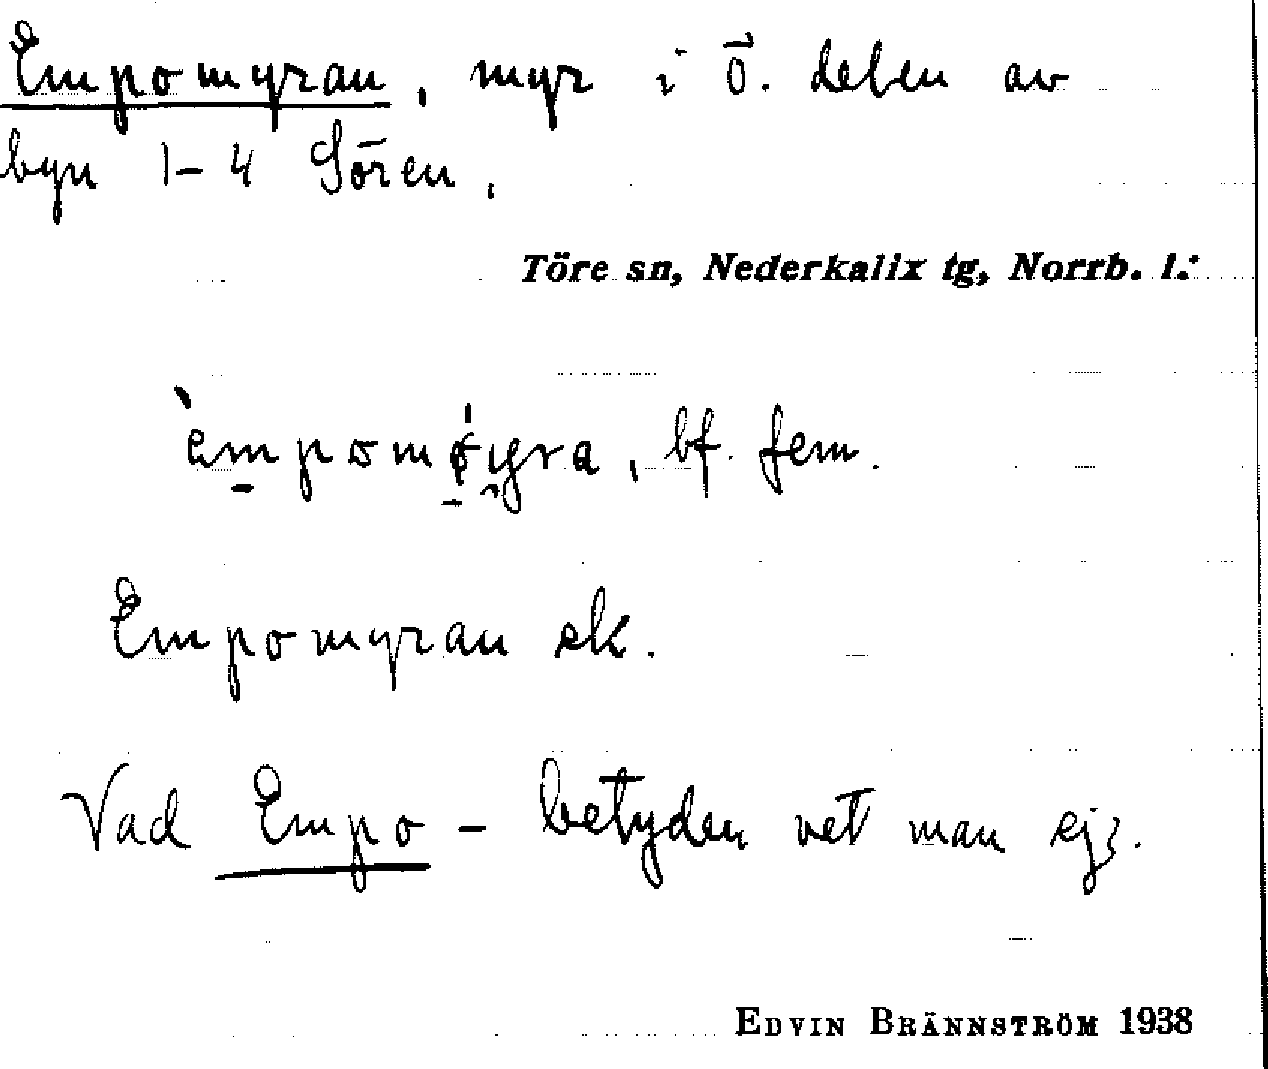 Empomyran, myr i ö. delen av
byn 1–4 Sören.
Töre sn, Nederkalix tg, Norrb. l.
bf. fem.
Empomyran ek.
Vad Empo – betyder vet man ej.
EDVIN BRÄNNSTRÖM 1938